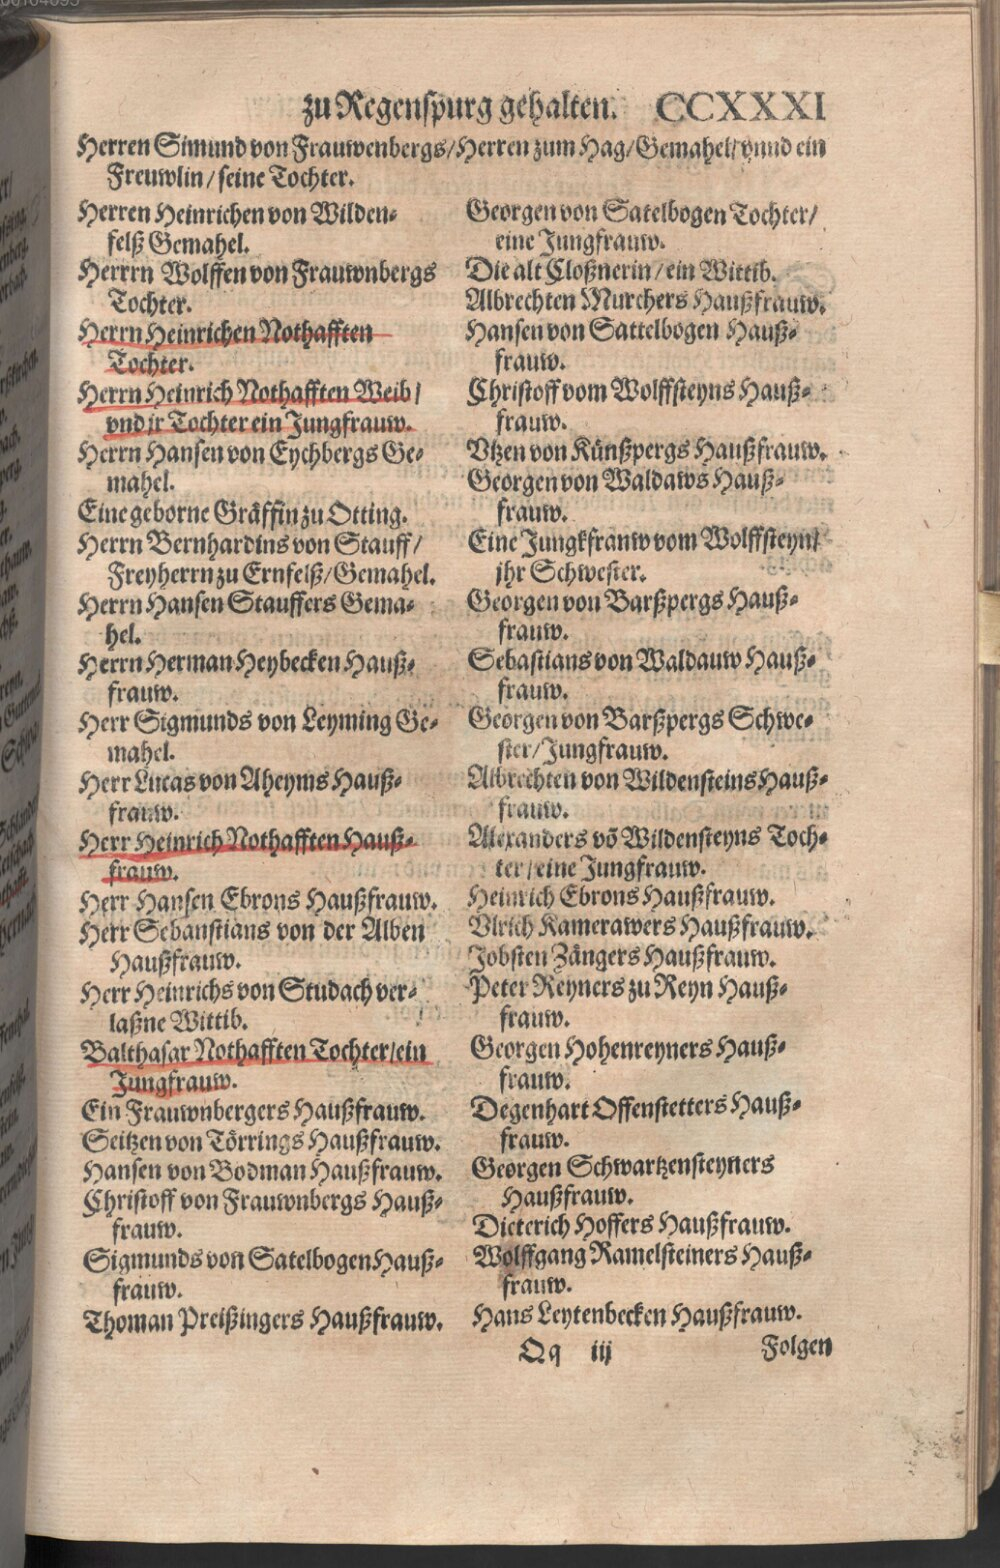 zu Regenspurg gehalten. CCXXXI
Herren Simund von Frauwenbergs/Herren zum Hag/Gemahel/vnnd ein
Freuwlin/seine Tochter.
Herren Heinrichen von Wilden-
felß Gemahel.
Herrrn Wolffen von Frauwnbergs
Tochter.
Herrn Heinrichen Nothafften
Tochter.
Herrn Heinrich Nothafften Weib/
vnd jr Tochter ein Jungfrauw.
Herrn Hansen von Eychbergs Ge-
mahel.
Eine geborne Gräffin zu Otting.
Herrn Bernhardins von Stauff/
Freyherrn zu Ernfelß/Gemahel.
Herrn Hansen Stauffers Gema-
hel.
Herrn Herman Heybecken Hauß-
frauw.
Herr Sigmunds von Leyming Ge-
mahel.
Herr Lucas von Aheyms Hauß-
frauw.
Herr Heinrich Nothafften Hauß-
frauw.
Herr Hansen Ebrons Haußfrauw.
Herr Sebanstians von der Alben
Haußfrauw.
Herr Heinrichs von Studach ver-
laßne Wittib.
Balthasar Nothafften Tochter/ein
Jungfrauw.
Ein Frauwnbergers Haußfrauw.
Seitzen von Törrings Haußfrauw.
Hansen von Bodman Haußfrauw.
Christoff von Frauwnbergs Hauß-
frauw.
Sigmunds von Satelbogen Hauß-
frauw.
Thoman Preißingers Haußfrauw.
Georgen von Satelbogen Tochter/
eine Jungfrauw.
Die alt Cloßnerin/ein Wittib.
Albrechten Murchers Haußfrauw.
Hansen von Sattelbogen Hauß-
frauw.
Christoff vom Wolffsteyns Hauß-
frauw.
Vtzen von Künßpergs Haußfrauw.
Georgen von Waldaws Hauß-
frauw.
Eine Jungkfranw vom Wolffsteyn/
jhr Schwester.
Georgen von Barßpergs Hauß-
frauw.
Sebastians von Waldauw Hauß-
frauw.
Georgen von Barßpergs Schwe-
ster/Jungfrauw.
Albrechten von Wildensteins Hauß-
frauw.
Alexanders võ Wildensteyns Toch-
ter/eine Jungfrauw.
Heinrich Ebrons Haußfrauw.
Vlrich Kamerawers Haußfrauw.
Jobsten Zängers Haußfrauw.
Peter Reyners zu Reyn Hauß-
frauw.
Georgen Hohenreyners Hauß-
frauw.
Degenhart Offenstetters Hauß-
frauw.
Georgen Schwartzensteyners
Haußfrauw.
Dieterich Hoffers Haußfrauw.
Wolffgang Ramelsteiners Hauß-
frauw.
Hans Leytenbecken Haußfrauw.
Qq iij Folgen